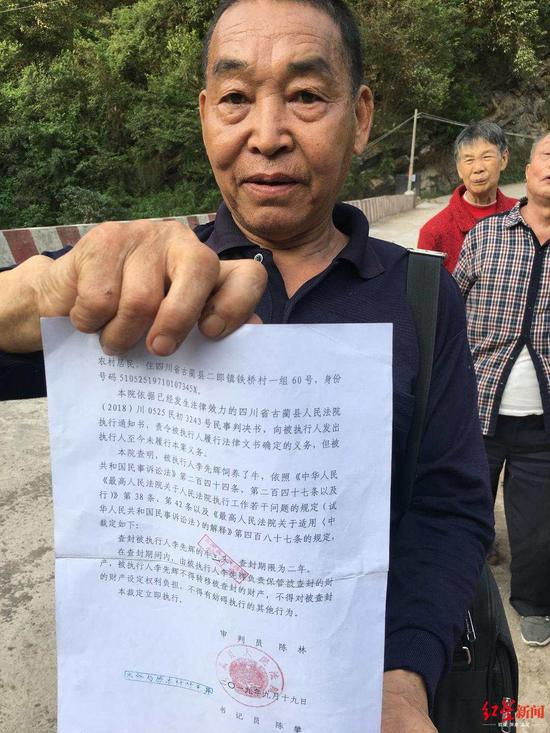 农村居民，住四川省古蔺县二郎镇铁桥村一组60号，身份
号码51052519710107345X。
本院依据已经发生法律效力的四川省古蔺县人民法院
(2018)川0525民初3243号民事判决书，向被执行人发出
执行通知书，责令被执行人履行法律文书确定的义务，但被
执行人至今未履行本案义务。
本院查明，被执行人李先辉饲养了牛，依照《中华人民
共和国民事诉讼法》第二百四十四条，第二百四十七条以及
《最高人民法院关于人民法院执行工作若干问题的规定（试
行）》第38条，第42条以及《最高人民法院关于适用〈中
华人民共和国民事诉讼法〉的解释》第四百八十七条的规定，
裁定如下：
查封被执行人李先辉的牛 查封期限为二年。
在查封期间内，由被执行人李先辉负责保管被查封的财
产，被执行人李先辉不得转移被查封的财产，不得对被查封
的财产设定权利负担，不得有妨碍执行的其他行为。
本裁定立即执行。
审判员 陈林
二〇一九年九月十九日
书记员 陈肇
红星新闻